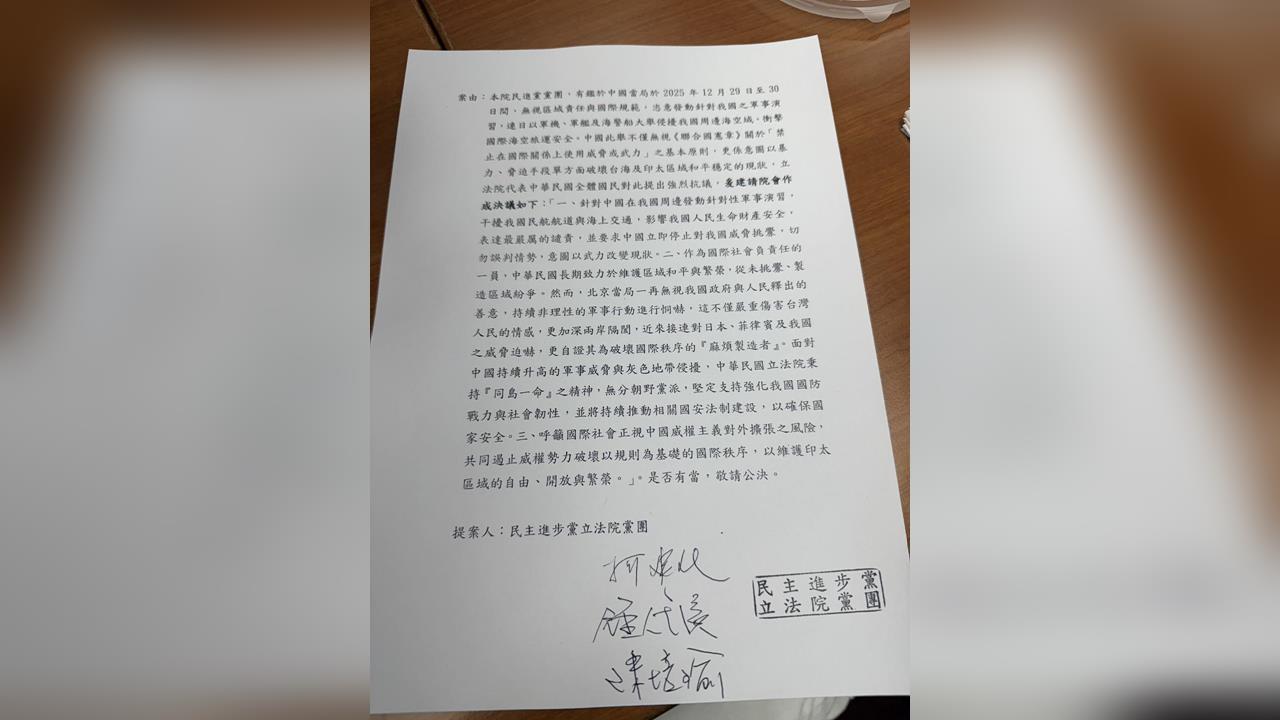 案由：本院民進黨黨團，有鑑於中國當局於 2025 年 12 月 29 日至 30
日間、無視區域責任與國際規範，恣意發動針對我國之軍事演
習，連日以軍機、軍艦及海警船大舉侵擾我國周邊海空域。衝擊
國際海空旅運安全。中國此舉不僅無視《聯合國憲章》關於「禁
止在國際關係上使用威脅或武力」之基本原則，更係意圖以暴
力、脅迫手段單方面破壞台海及印太區域和平穩定的現狀，立
法院代表中華民國全體國民對此提出強烈抗議，爰建請院會作
成決議如下：「一、針對中國在我國周邊發動針對性軍事演習，
干擾我國民航航道與海上交通，影響我國人民生命財產安全，
表達最嚴厲的譴責，並要求中國立即停止對我國威脅挑釁，切
勿誤判情勢，意圖以武力改變現狀。二、作為國際社會負責任的
一員，中華民國長期致力於維護區域和平與繁榮，從未挑釁、製
造區域紛爭。然而，北京當局一再無視我國政府與人民釋出的
善意，持續非理性的軍事行動進行恫嚇，這不僅嚴重傷害台灣
人民的情感，更加深兩岸隔閡，近來接連對日本、菲律賓及我國
之威脅迫嚇，更自證其為破壞國際秩序的『麻煩製造者』。面對
中國持續升高的軍事威脅與灰色地帶侵擾，中華民國立法院秉
持『同島一命』之精神，無分朝野黨派，堅定支持強化我國國防
戰力與社會韌性，並將持續推動相關國安法制建設，以確保國
家安全。三、呼籲國際社會正視中國威權主義對外擴張之風險，
共同遏止威權勢力破壞以規則為基礎的國際秩序，以維護印太
區域的自由、開放與繁榮。」。是否有當，敬請公決。
提案人：民主進步黨立法院黨團
柯建銘
民主進步黨
立法院黨團
陳培瑜